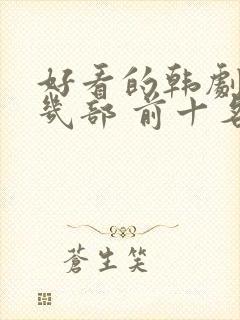 好看的韩剧
几部 前十名
蒼生笑